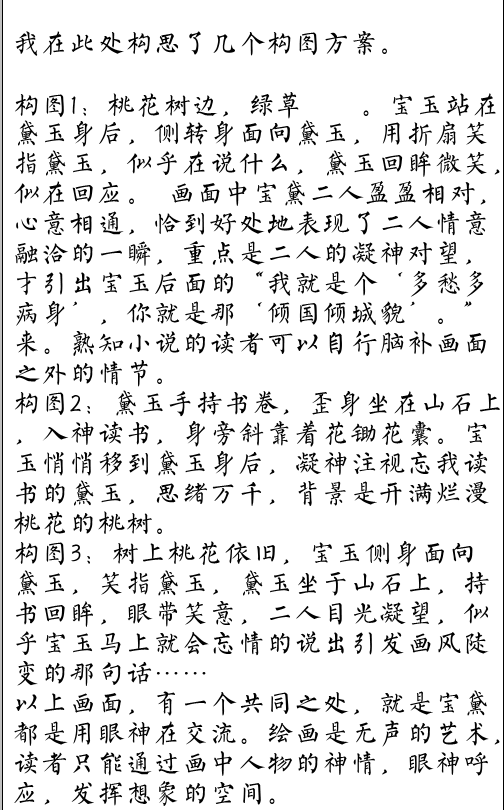 我在此处构思了几个构图方案。
构图1：桃花树边，绿草　　。宝玉站在
黛玉身后，侧转身面向黛玉，用折扇笑
指黛玉，似乎在说什么，黛玉回眸微笑，
似在回应。 画面中宝黛二人盈盈相对，
心意相通，恰到好处地表现了二人情意
融洽的一瞬，重点是二人的凝神对望，
才引出宝玉后面的“我就是个‘多愁多
病身’，你就是那‘倾国倾城貌’。”
来。熟知小说的读者可以自行脑补画面
之外的情节。
构图2：黛玉手持书卷，歪身坐在山石上
，入神读书，身旁斜靠着花锄花囊。宝
玉悄悄移到黛玉身后，凝神注视忘我读
书的黛玉，思绪万千，背景是开满烂漫
桃花的桃树。
构图3：树上桃花依旧，宝玉侧身面向
黛玉，笑指黛玉，黛玉坐于山石上，持
书回眸，眼带笑意，二人目光凝望，似
乎宝玉马上就会忘情的说出引发画风陡
变的那句话……
以上画面，有一个共同之处，就是宝黛
都是用眼神在交流。绘画是无声的艺术，
读者只能通过画中人物的神情，眼神呼
应，发挥想象的空间。